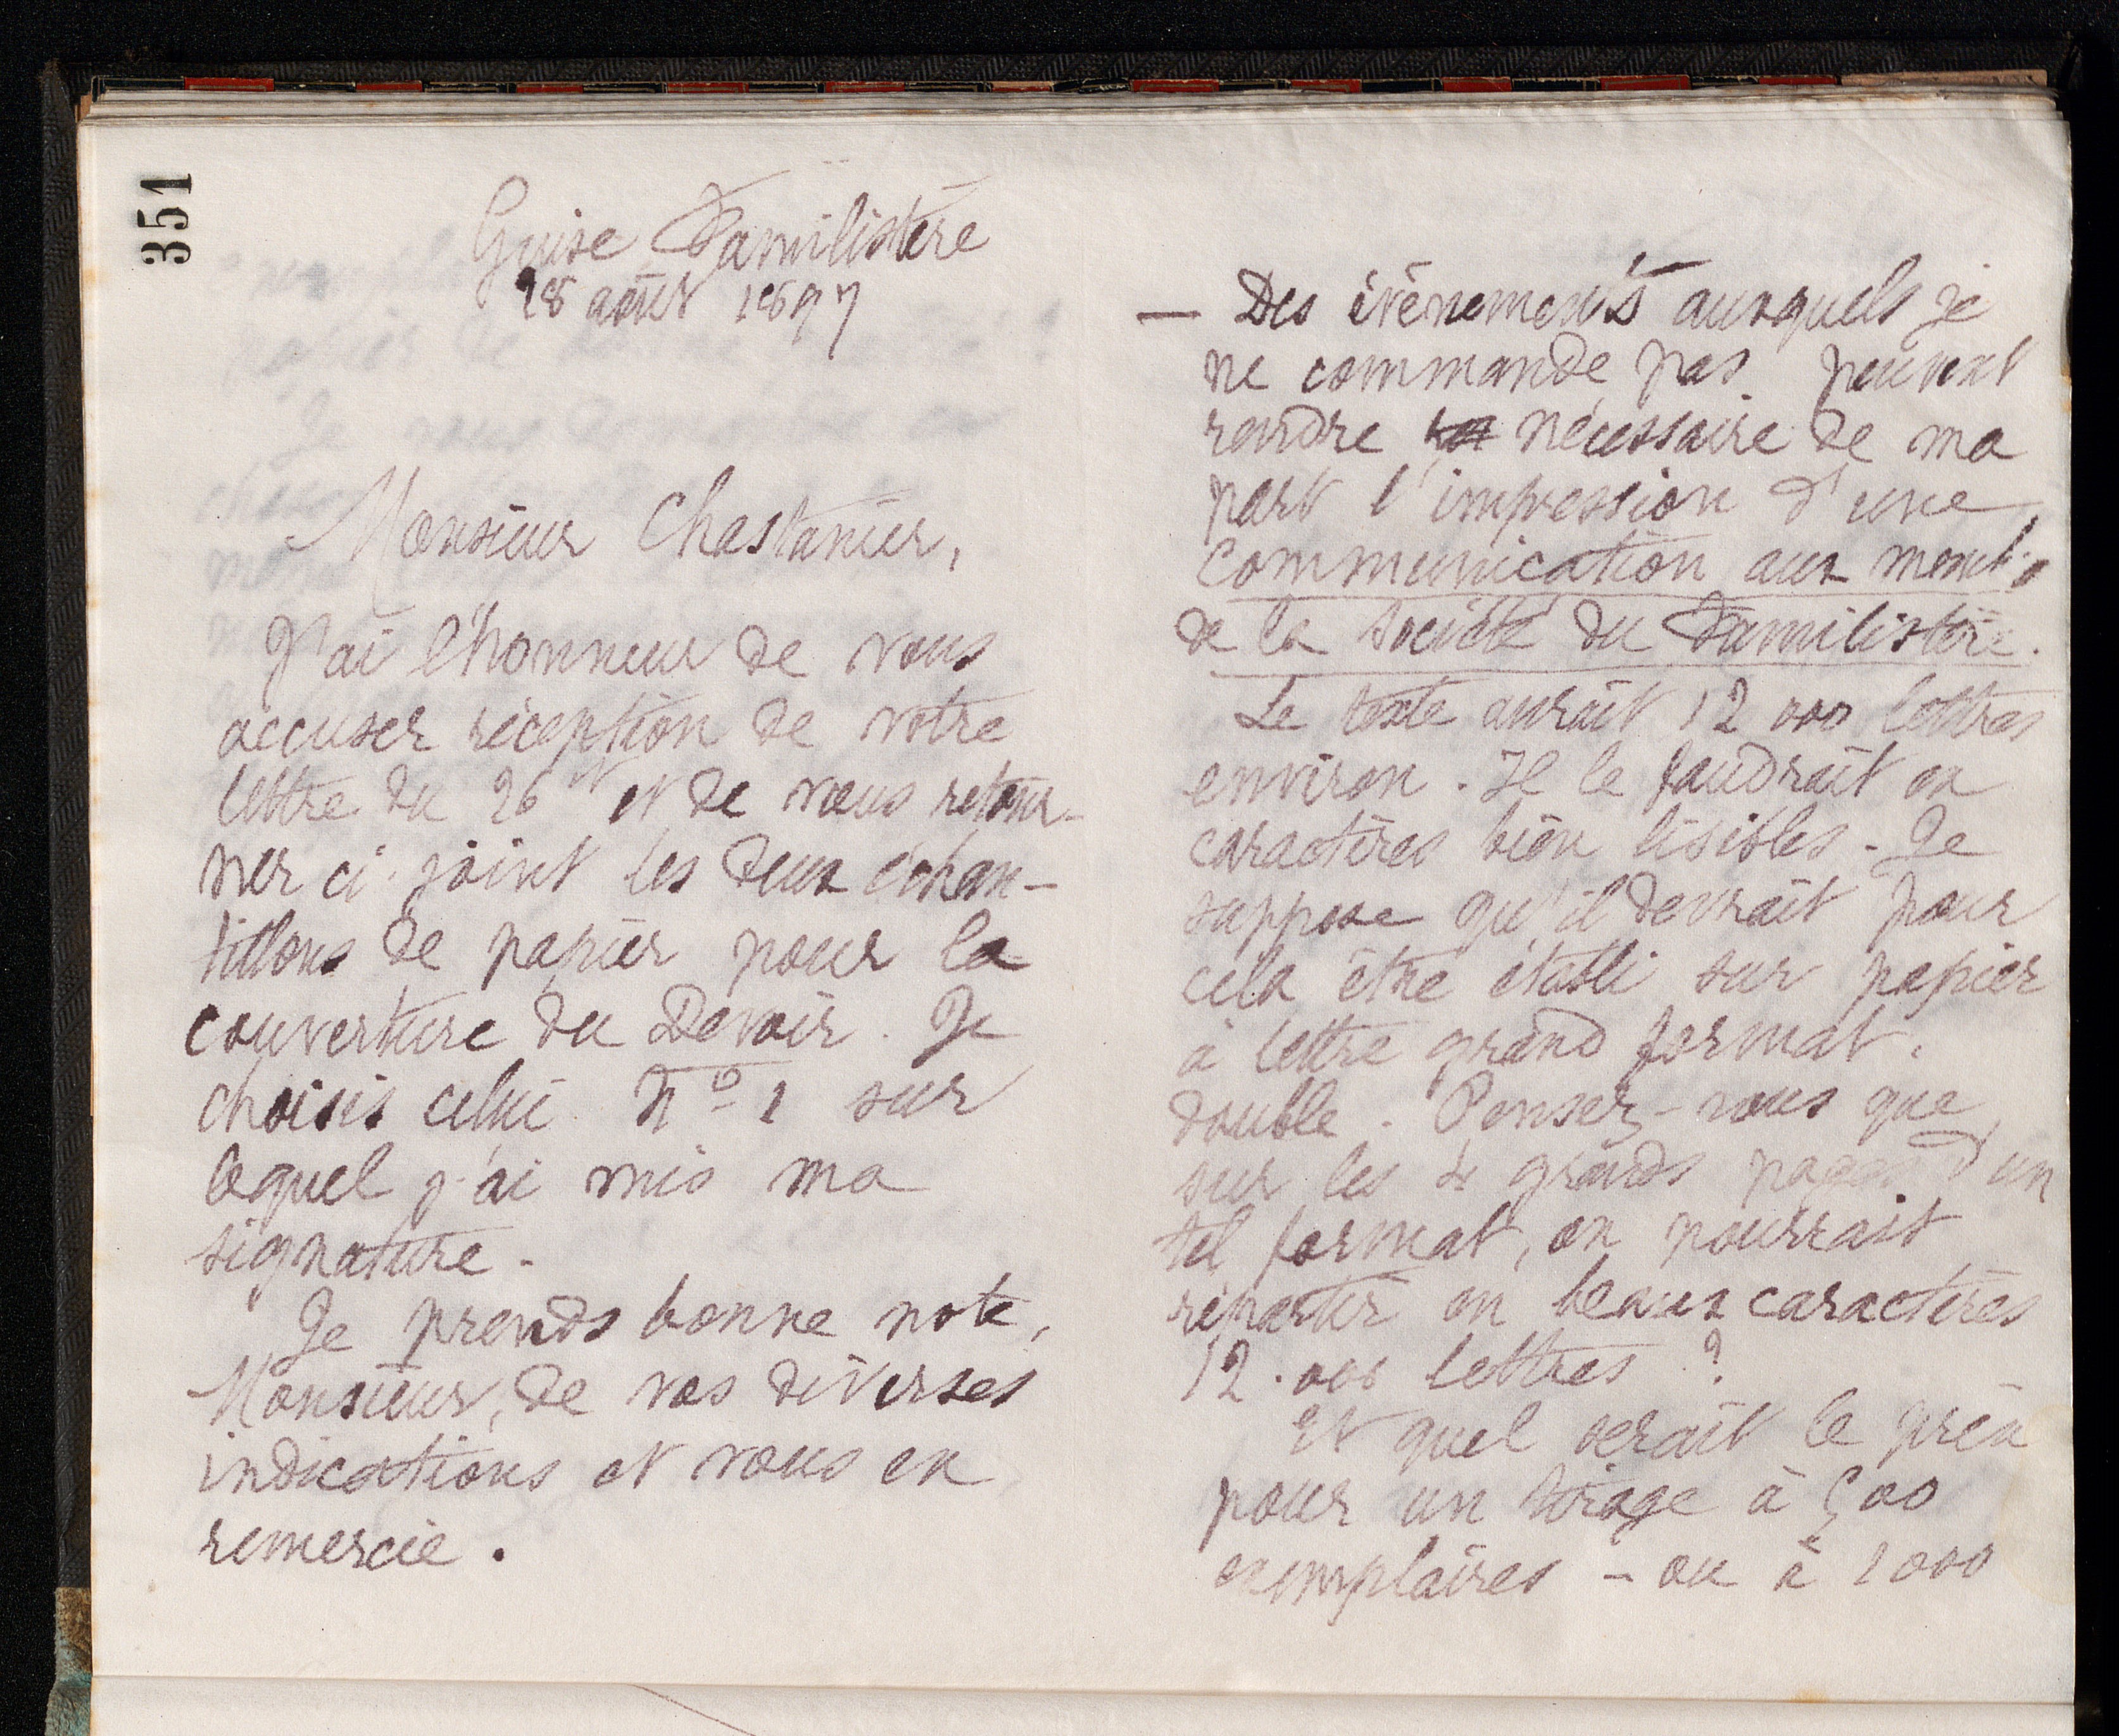 351
Guise Familistère
28 août 1897
Monsieur Chastanier,
J'ai l'honneur de vous
accuser réception de votre
lettre du 26 et de vous retour-
ner ci-joint les deux échan-
tillons de papier pour la
couverture du Devoir. Je
choisis celui Nº 1 sur
lequel j'ai mis ma
signature.
Je prends bonne note,
Monsieur, de vos diverses
indications et vous en
remercie.
— Des évènements auxquels je
ne commande pas peuvent
rendre nécessaire de ma
part l'impression d'une
communication aux memb.s
de la Société du Familistère.
Le texte aurait 12 000 lettres
environ. Il le faudrait en
caractères bien lisibles. Je
suppose qu'il devrait pour
cela être établi sur papier
à lettre grand format,
double. Pensez-vous que
sur les 4 grands pages d'un
tel format, on pourrait
répartir en beaux caractères
12.000 lettres ?
Et quel serait le prix
pour un tirage à 500
exemplaires – ou à 1000